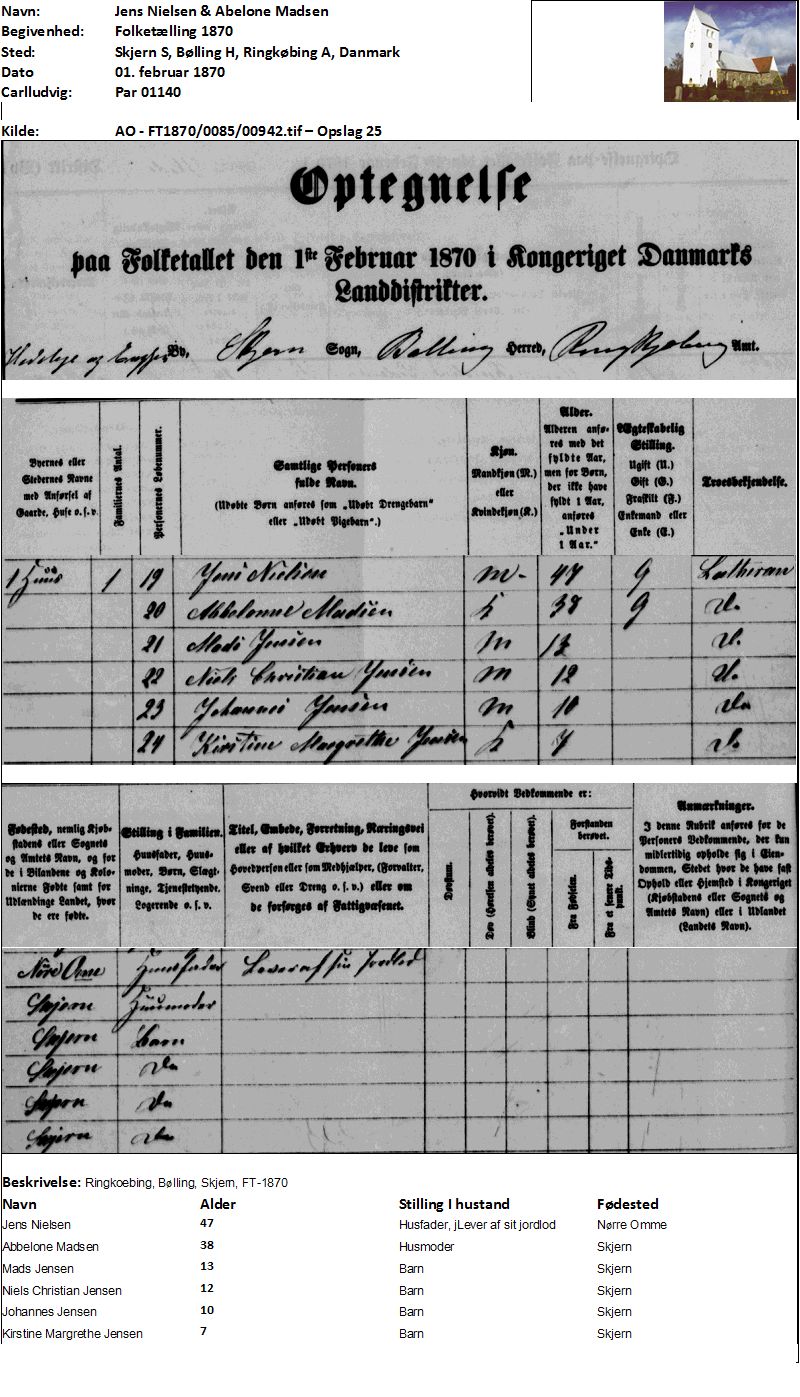 Navn: Jens Nielsen & Abelone Madsen
Begivenhed: Folketælling 1870
Sted: Skjern S, Bølling H, Ringkøbing A, Danmark
Dato 01. februar 1870
Carlludvig: Par 01140
Kilde: AO - FT1870/0085/00942.tif – Opslag 25
Optegnelse
paa Folketallet den 1ste Februar 1870 i Kongeriget Danmarks
Landdistrikter.
og By, Skjern Sogn, Bølling Herred, Ringkjøbing Amt.
Byernes eller
Stedernes Navne
med Anførsel af
Gaarde, Huse o. s. v.
Familiernes Antal.
Personernes Løbenummer.
Samtlige Personers
fulde Navn.
(Udøbte Børn anføres som „Udøbt Drengebarn“
eller „Udøbt Pigebarn“.)
Kjøn.
Mandkjøn (M.)
eller
Kvindekjøn (K.)
Alder.
Alderen anfø-
res med det
fyldte Aar,
men for Børn,
der ikke have
fyldt 1 Aar,
anføres
„Under
1 Aar.“
Ægteskabelig
Stilling.
Ugift (U.)
Gift (G.)
Fraskilt (F.)
Enkemand eller
Enke (E.)
Troesbekjendelse.
1 Huus 1 19 Jens Nielsen M. 47 G Lutheran
20 Abbelonne Madsen K 38 G Do
21 Mads Jensen M 13 Do
22 Niels Christian Jensen M 12 Do
23 Johannes Jensen M 10 Do
24 Kirstine Margrethe Jensen K 7 Do
Fødested, nemlig Kjøb-
stadens eller Sognets
og Amtets Navn, og for
de i Bilandene og Kolo-
nierne Fødte samt for
Udlændinge Landet, hvor
de ere fødte.
Stilling i Familien.
Huusfader, Huus-
moder, Børn, Slægt-
ninge, Tjenestetyende,
Logerende o. s. v.
Titel, Embede, Forretning, Næringsvei
eller af hvilket Erhverv de leve som
Hovedperson eller som Medhjælper, (Forvalter,
Svend eller Dreng o. s. v.) eller om
de forsørges af Fattigvæsenet.
Hvorvidt Vedkommende er:
Døvstum.
Døv (Hørelsen aldeles berøvet).
Blind (Synet aldeles berøvet).
Forstanden
berøvet.
Fra Fødselen.
Fra et senere Tids-
punkt.
Anmærkninger.
I denne Rubrik anføres for de
Personers Vedkommende, der kun
midlertidig opholde sig i Eien-
dommen, Stedet hvor de have fast
Ophold eller Hjemsted i Kongeriget
(Kjøbstadens eller Sognets og
Amtets Navn) eller i Udlandet
(Landets Navn).
Nörre Omme Huusfader Lever af sin Jordlod
Skjern Huusmoder
Skjern Barn
Skjern Do
Skjern Do
Skjern Do
Beskrivelse: Ringkoebing, Bølling, Skjern, FT-1870
Navn Alder Stilling I hustand Fødested
Jens Nielsen 47 Husfader, jLever af sit jordlod Nørre Omme
Abbelone Madsen 38 Husmoder Skjern
Mads Jensen 13 Barn Skjern
Niels Christian Jensen 12 Barn Skjern
Johannes Jensen 10 Barn Skjern
Kirstine Margrethe Jensen 7 Barn Skjern